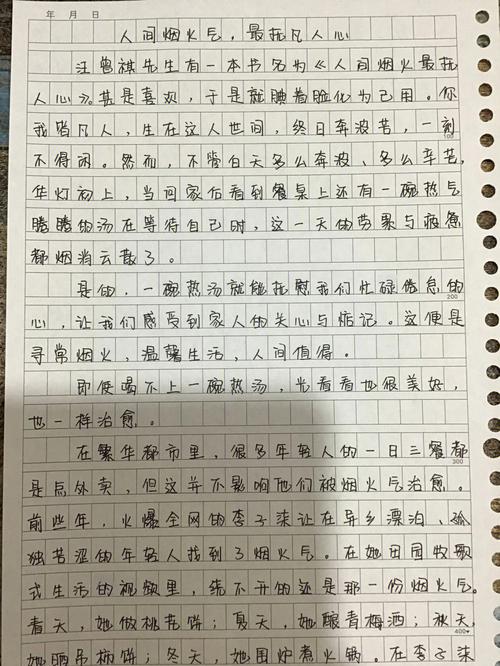 年 月 日
人间烟火气，最抚凡人心
汪曾祺先生有一本书名为《人间烟火最抚
人心》。甚是喜欢，于是就腆着脸化为己用。你
我皆凡人，生在这人世间，终日奔波苦，一刻
100
不得闲。然而，不管白天多么奔波、多么辛苦，
华灯初上，当回家后看到餐桌上还有一碗热气
腾腾的汤在等待自己时，这一天的劳累与疲惫
都烟消云散了。
是的，一碗热汤就能抚慰我们忙碌倦怠的
200
心，让我们感受到家人的关心与惦记。这便是
寻常烟火，温馨生活，人间值得。
即便喝不上一碗热汤，光看看也很美好，
也一样治愈。
在繁华都市里，很多年轻人的一日三餐都
300
是点外卖，但这并不影响他们被烟火气治愈。
前些年，火爆全网的李子柒让在异乡漂泊、孤
独苦涩的年轻人找到了烟火气。在她田园牧歌
式生活的视频里，绕不开的还是那一份烟火气。
春天，她做桃花饼；夏天，她酿青梅酒；秋天，
400
她晒吊柿饼；冬天，她围炉煮火锅。在李子柒